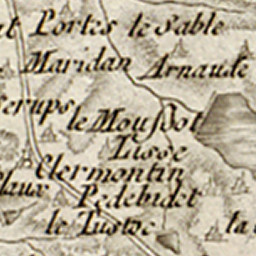 Portes le Sable
Maridan Arnaude
le Moussot
Lisse
Clermontin
Pedebidet
le Tustoc
la